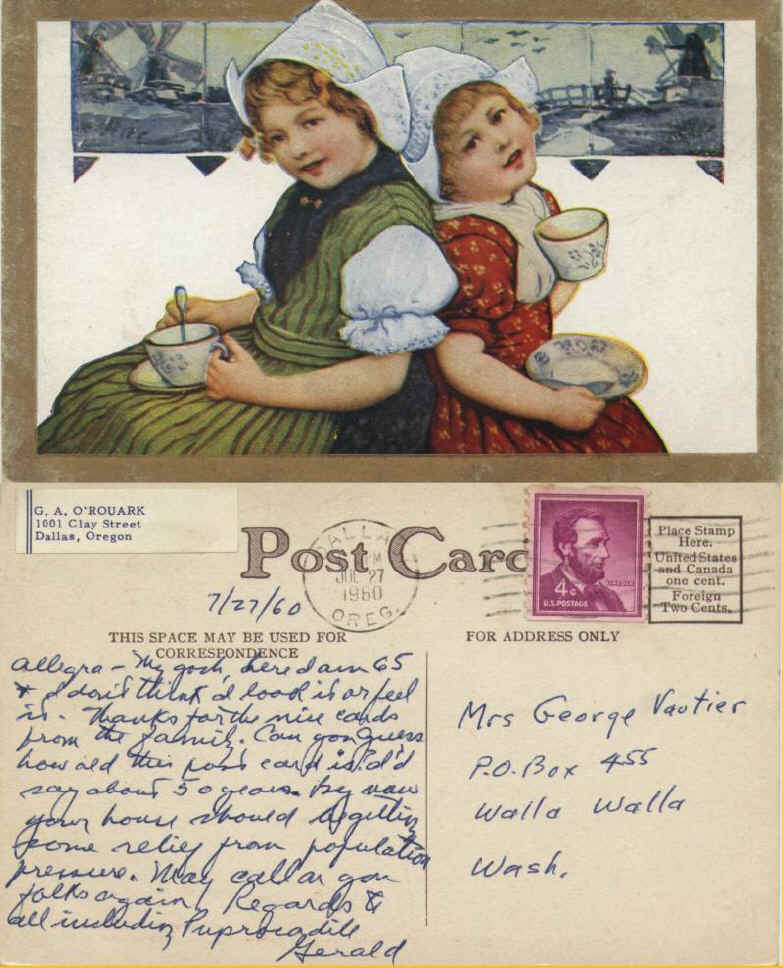 G. A. O'ROUARK
1001 Clay Street
Dallas, Oregon
Post Card
DALLAS
JUL 27
1960
OREG.
4¢
U.S. POSTAGE
Place Stamp
Here.
United States
and Canada
one cent.
Foreign
Two Cents.
7/27/60
THIS SPACE MAY BE USED FOR
CORRESPONDENCE
FOR ADDRESS ONLY
Allegra – My gosh, here I am 65
& I don't think I look it or feel
it. Thanks for the nice cards
from the family. Can you guess
how old this post card is? I'd
say about 50 years. By now
your house should be getting
some relief from population
pressure. May call on you
folks again. Regards to
all including
Gerald
Mrs George Vautier
P.O. Box 455
Walla Walla
Wash.